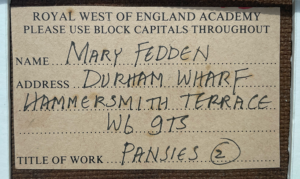 ROYAL WEST OF ENGLAND ACADEMY
PLEASE USE BLOCK CAPITALS THROUGHOUT
NAME MARY FEDDEN
ADDRESS DURHAM WHARF
HAMMERSMITH TERRACE
W6 9TS
TITLE OF WORK PANSIES 2